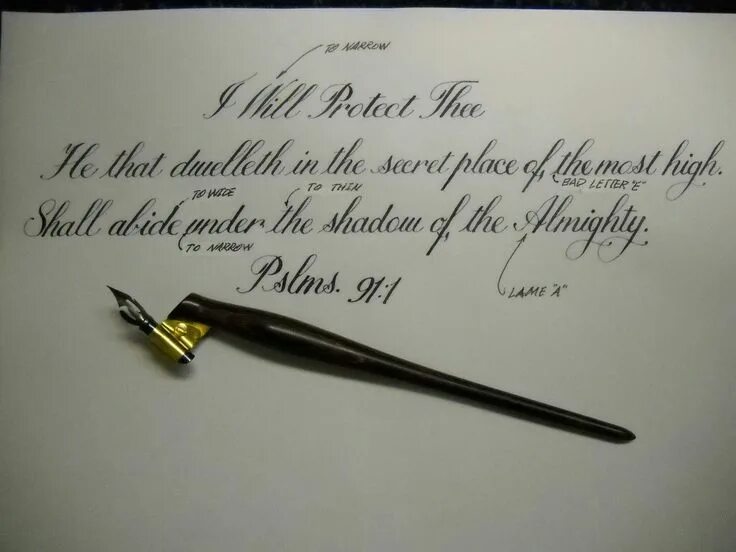 TO NARROW
I Will Protect Thee
He that dwelleth in the secret place of, the most high.
TO WIDE
TO THIN
BAD LETTER "E"
Shall abide under the shadow of the Almighty.
TO NARROW
Pslms. 91:1
LAME "A"